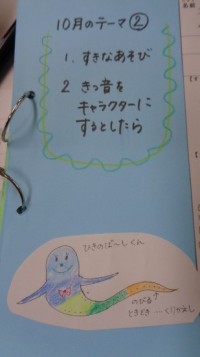 10月のテーマ②
1. すきなあそび
2 きつ音を
キャラクターに
するとしたら
ひきのば〜しくん
のびる
ときどき…くりかえし